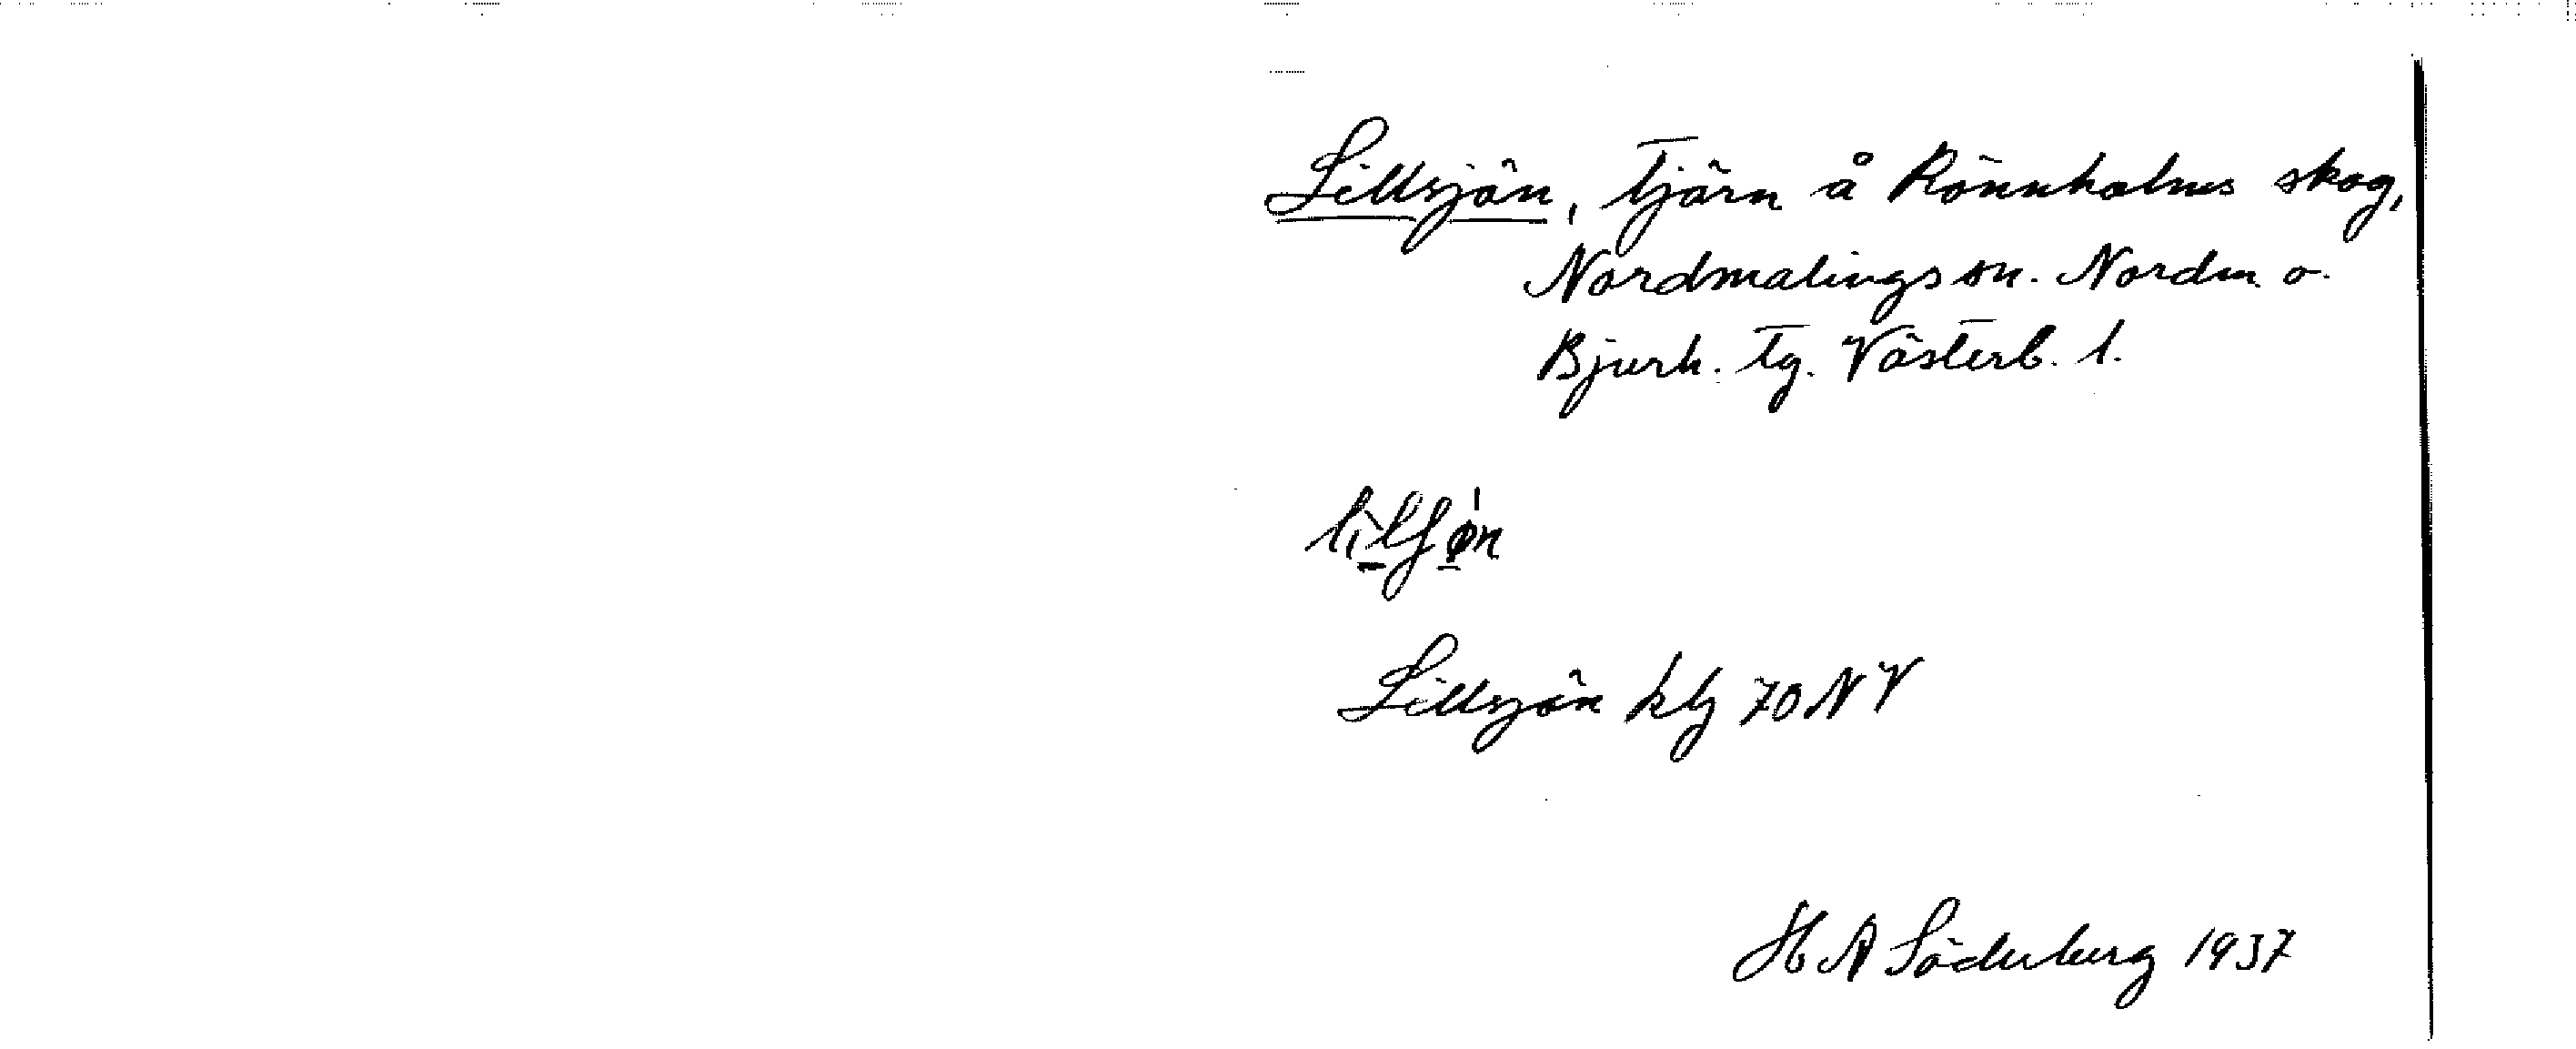 Lillsjön, tjärn å Rönnholms skog,
Nordmalings sn. Nordm o.
Bjurh. tg. Västerb. l.
Lillsjön kbj 70 NV
H A Söderberg 1937